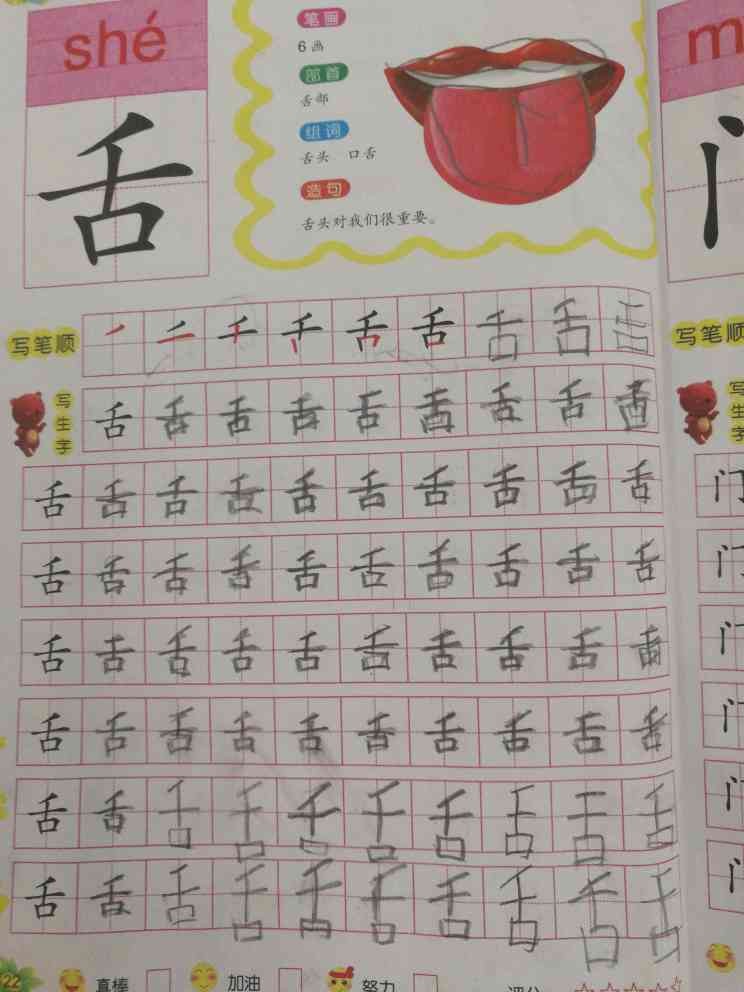 shé
舌
笔画
6画
部首
舌部
组词
舌头 口舌
造句
舌头对我们很重要。
写笔顺
舌 舌 舌 舌
写生字
舌 舌 舌 舌 舌 舌 舌 舌 舌
舌 舌 舌 舌 舌 舌 舌 舌 舌 舌
舌 舌 舌 舌 舌 舌 舌 舌 舌 舌
舌 舌 舌 舌 舌 舌 舌 舌 舌 舌
舌 舌 舌 舌 舌 舌 舌 舌 舌 舌
舌 舌 舌 舌 舌 舌 舌 舌 舌 舌
舌 舌 舌 舌 舌 舌 舌 舌 舌 舌
22 真棒 加油 努力 评分
m
门
写笔顺
写生字
门
门
门
门
门
门